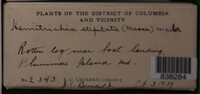 PLANTS OF THE DISTRICT OF COLUMBIA
AND VICINITY
Hemitrichia stipitata (Massee) Macbr
Rotten log near boat landing
Plummers Island Md.
No. 2343
838284